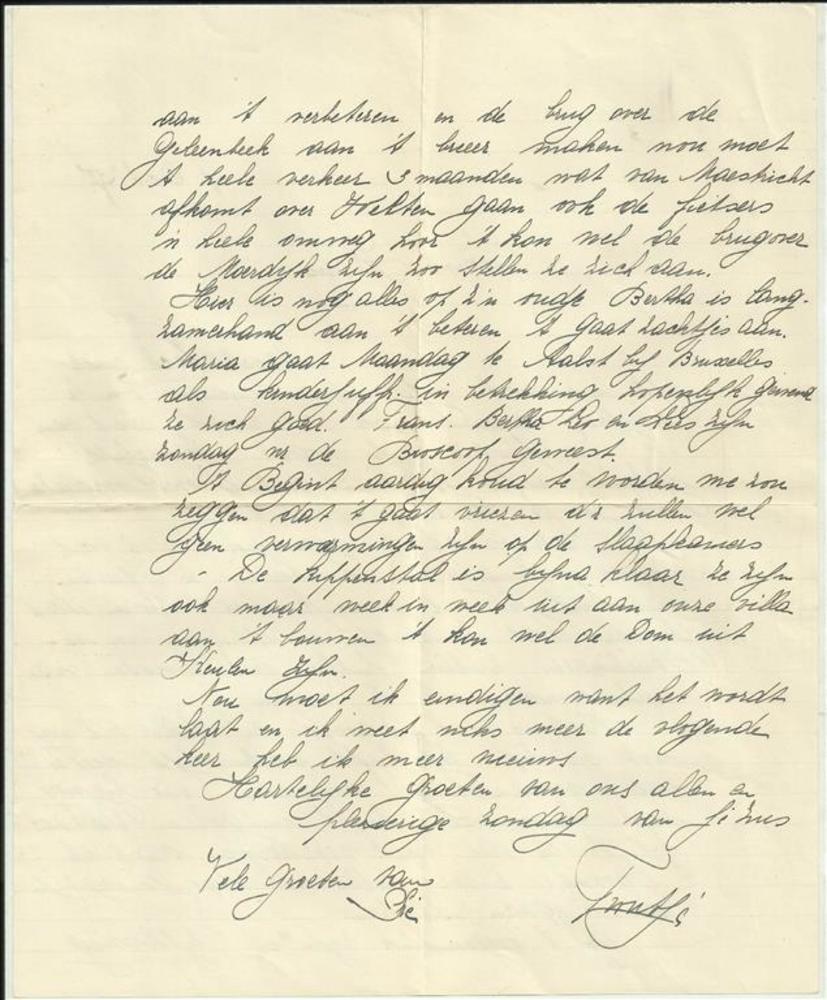 aan 't verbeteren en de brug over de
Geleenbeek aan 't breer maken nou moet
't heele verkeer 3 maanden wat van Maestricht
afkomt over Welten gaan ook de fietsers
'n heele omweg hoor 't kon wel de brug over
de Moerdijk zijn zoo stellen ze zich aan.
Hier is nog alles op z'n oudje Bertha is lang-
zamerhand aan 't beteren 't gaat zachtjes aan.
Maria gaat Maandag te Aalst bij Bruxelles
als kinderjuffr. in betrekking hopenlijk gewend
ze zich goed. Frans. Bertha Lo en Lies zijn
zondag nr de Bioscoop geweest.
't Begint aardig koud te worden me zou
zeggen dat 't gaat vriezen dr zullen wel
geen verwarmingen zijn op de slaapkamers
- De kippenstal is bijna klaar ze zijn
ook maar week in week uit aan onze villa
aan 't bouwen 't kon wel de Dom uit
Keulen zijn.
Nou moet ik eindigen want het wordt
laat en ik weet niks meer de vlogende
keer heb ik meer nieuws
Hartelijke Groeten van ons allen en
plezierige zondag van je zus
Vele Groeten van
Truutje